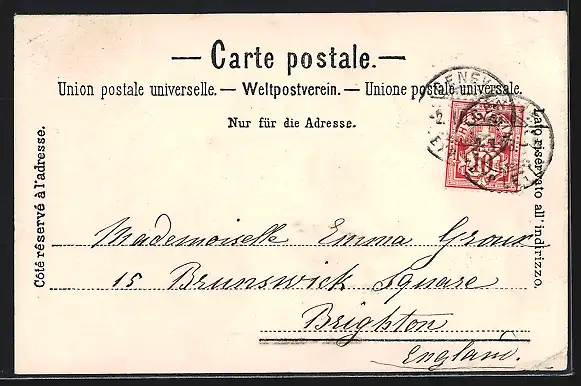 — Carte postale. —
Union postale universelle. — Weltpostverein. — Unione postale universale.
Nur für die Adresse.
Côté réservé à l'adresse.
Lato riservato all' indirizzo.
GENÈVE
10
Mademoiselle Emma
15 Brunswick Square
Brighton
England.